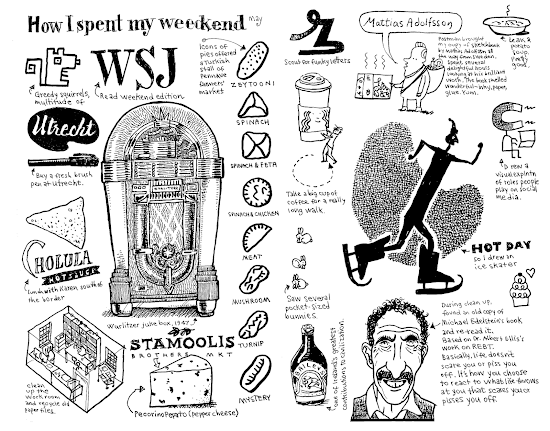 How I spent my weekend
may
WSJ
Greedy squirrels,
multitude of
Read weekend edition
Icons of
pies offered
a Turkish
stall of
farmers'
market
ZEYTOONI
SPINACH
SPINACH & FETA
SPINACH & CHICKEN
MEAT
MUSHROOM
TURNIP
MYSTERY
Utrecht
Buy a fresh brush
pen at Utrecht.
CHOLULA
HOT SAUCE
Lunch with Karen south of
the border
Wurlitzer juke box, 1947
STAMOOLIS
BROTHERS MKT
Pecorino Pepato (pepper cheese)
Clean
up the
workroom
and recycle old
paper files.
Scout for funky letters
Take a big cup of
coffee for a really
long walk.
Saw several
pocket-sized
bunnies.
BAILEYS
One of Ireland's greatest
contributions to civilization
Mattias Adolfsson
Postman brought
my copy of sketchbook
by Mattias Adolfsson all
the way from Sweden.
Spent several
delightful hours
looking at his brilliant
work. The book smelled
wonderful—why, paper,
glue. Yum.
Leek &
potato
soup.
Pretty
good.
Drew a
visual expltn
of roles people
play on social
media.
HOT DAY
so I drew an
ice skater
During clean up,
found an old copy of
Michael Edelstein's book
and re-read it.
Based on Dr. Albert Ellis's
work on REBT.
Basically, life doesn't
scare you or piss you
off. It's how you choose
to react to what life throws
at you that scares you or
pisses you off.